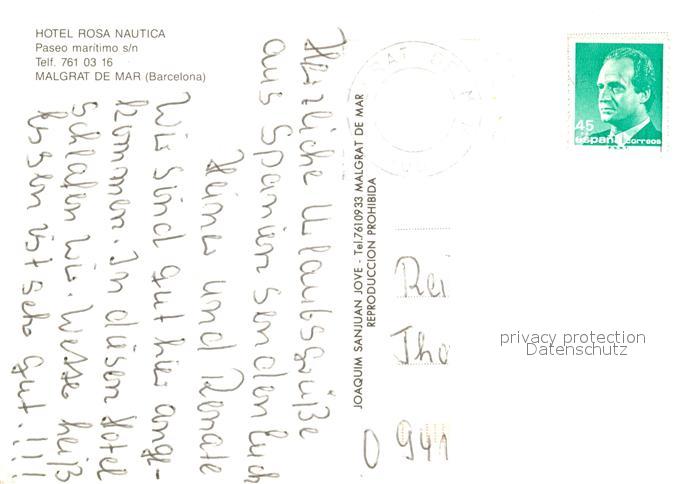 HOTEL ROSA NAUTICA
Paseo marítimo s/n
Telf. 761 03 16
MALGRAT DE MAR (Barcelona)
Herzliche Urlaubsgrüße
aus Spanien senden Euch
Heiner und Renate
Wir sind gut hier ange-
kommen. In diesen Hotel
schlafen wir. Wetter heiß
Essen ist sehr gut.!!!
JOAQUIM SANJUAN JOVE - Tel.7610933 MALGRAT DE MAR
REPRODUCCION PROHIBIDA
45
españa correos
Rei
Tho
O 941
privacy protection
Datenschutz